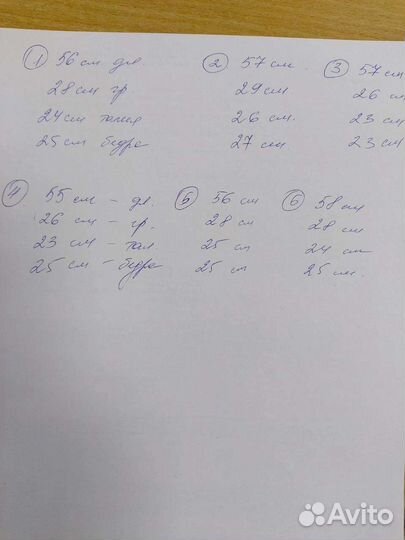 ① 56 см дл. ② 57 см. ③ 57 см
28 см гр 29 см 26 см
24 см талия 26 см. 23 см
25 см бедра 27 см 23 см
④ 55 см – дл. ⑤ 56 см ⑥ 58 см
26 см – гр. 28 см 28 см
23 см – тал. 25 см 24 см
25 см – бедра 25 см 25 см.
Avito